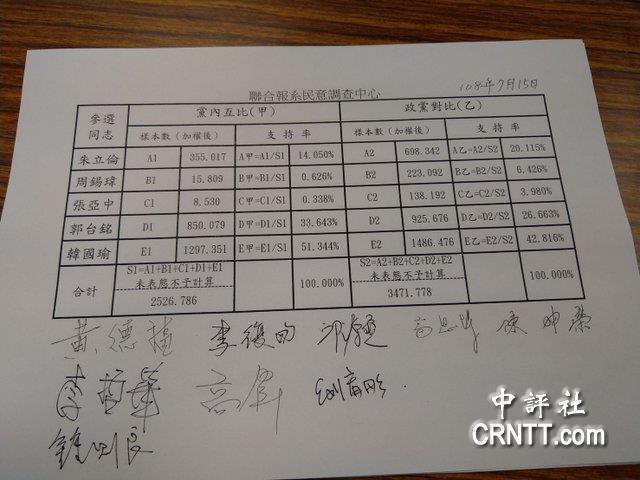 聯合報系民意調查中心 108年7月15日
參選同志 黨內互比(甲) 政黨對比(乙)
樣本數(加權後) 支持率 樣本數(加權後) 支持率
朱立倫 A1 355.017 A甲=A1/S1 14.050% A2 698.342 A乙=A2/S2 20.115%
周錫瑋 B1 15.809 B甲=B1/S1 0.626% B2 223.092 B乙=B2/S2 6.426%
張亞中 C1 8.530 C甲=C1/S1 0.338% C2 138.192 C乙=C2/S2 3.980%
郭台銘 D1 850.079 D甲=D1/S1 33.643% D2 925.676 D乙=D2/S2 26.663%
韓國瑜 E1 1297.351 E甲=E1/S1 51.344% E2 1486.476 E乙=E2/S2 42.816%
合計 S1=A1+B1+C1+D1+E1 100.000% S2=A2+B2+C2+D2+E2 100.000%
未表態不予計算 未表態不予計算
2526.786 3471.778
黃德
李哲華 高
中評社
CRNTT.com